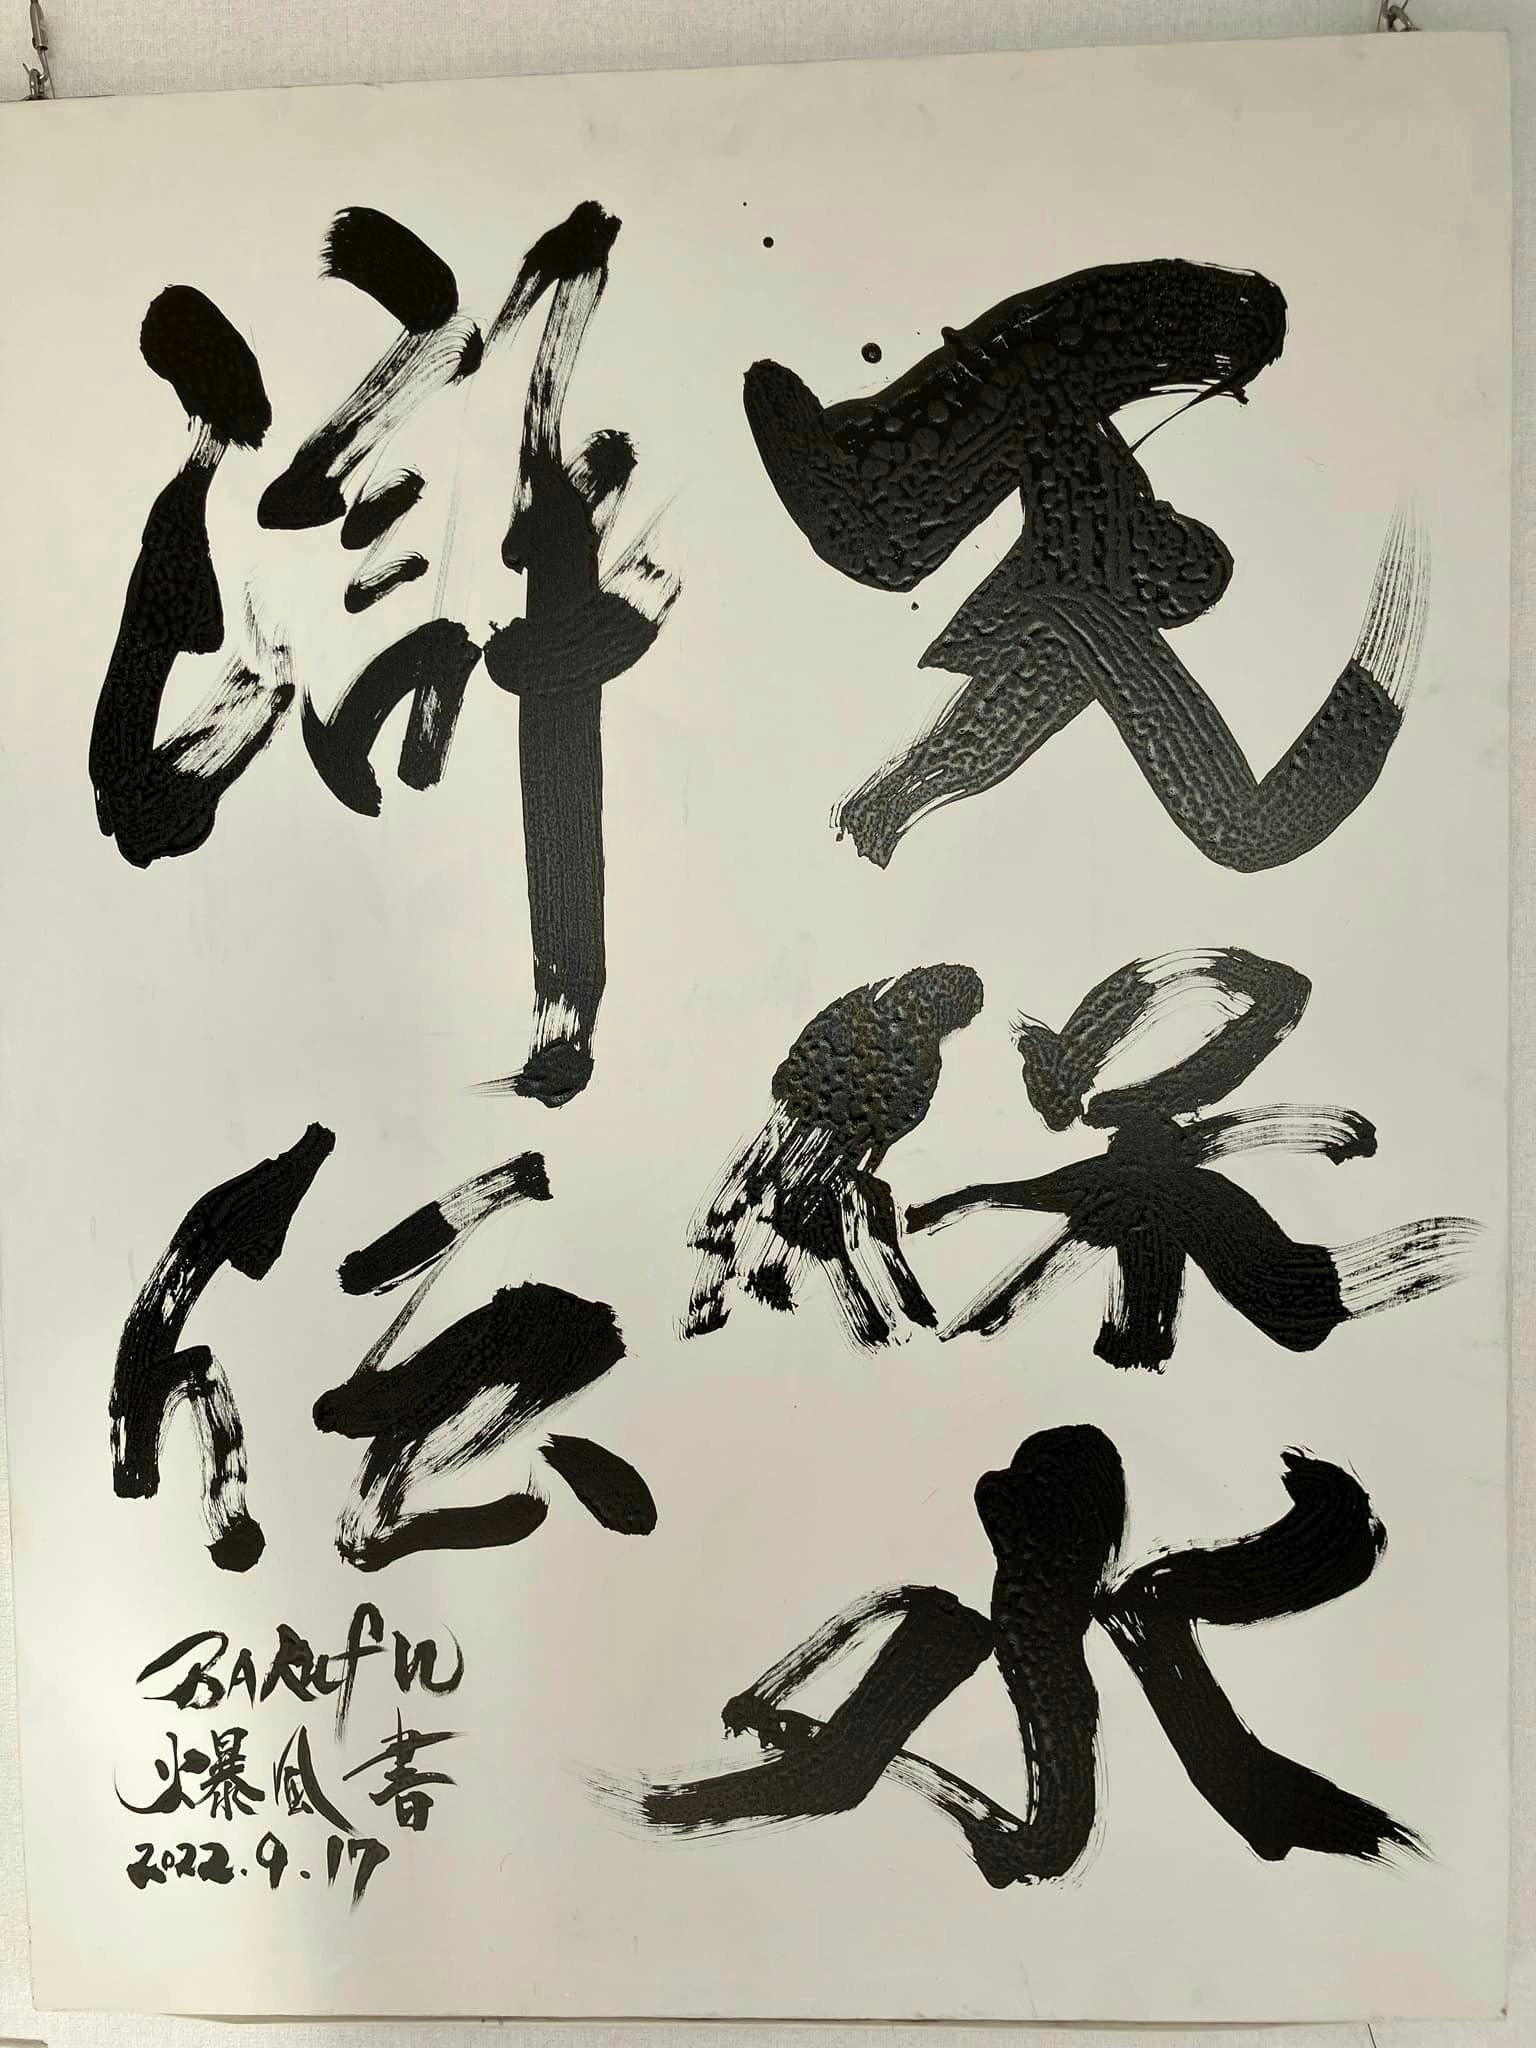 天保水
滸伝
BAKUfU
爆風書
2022.9.17